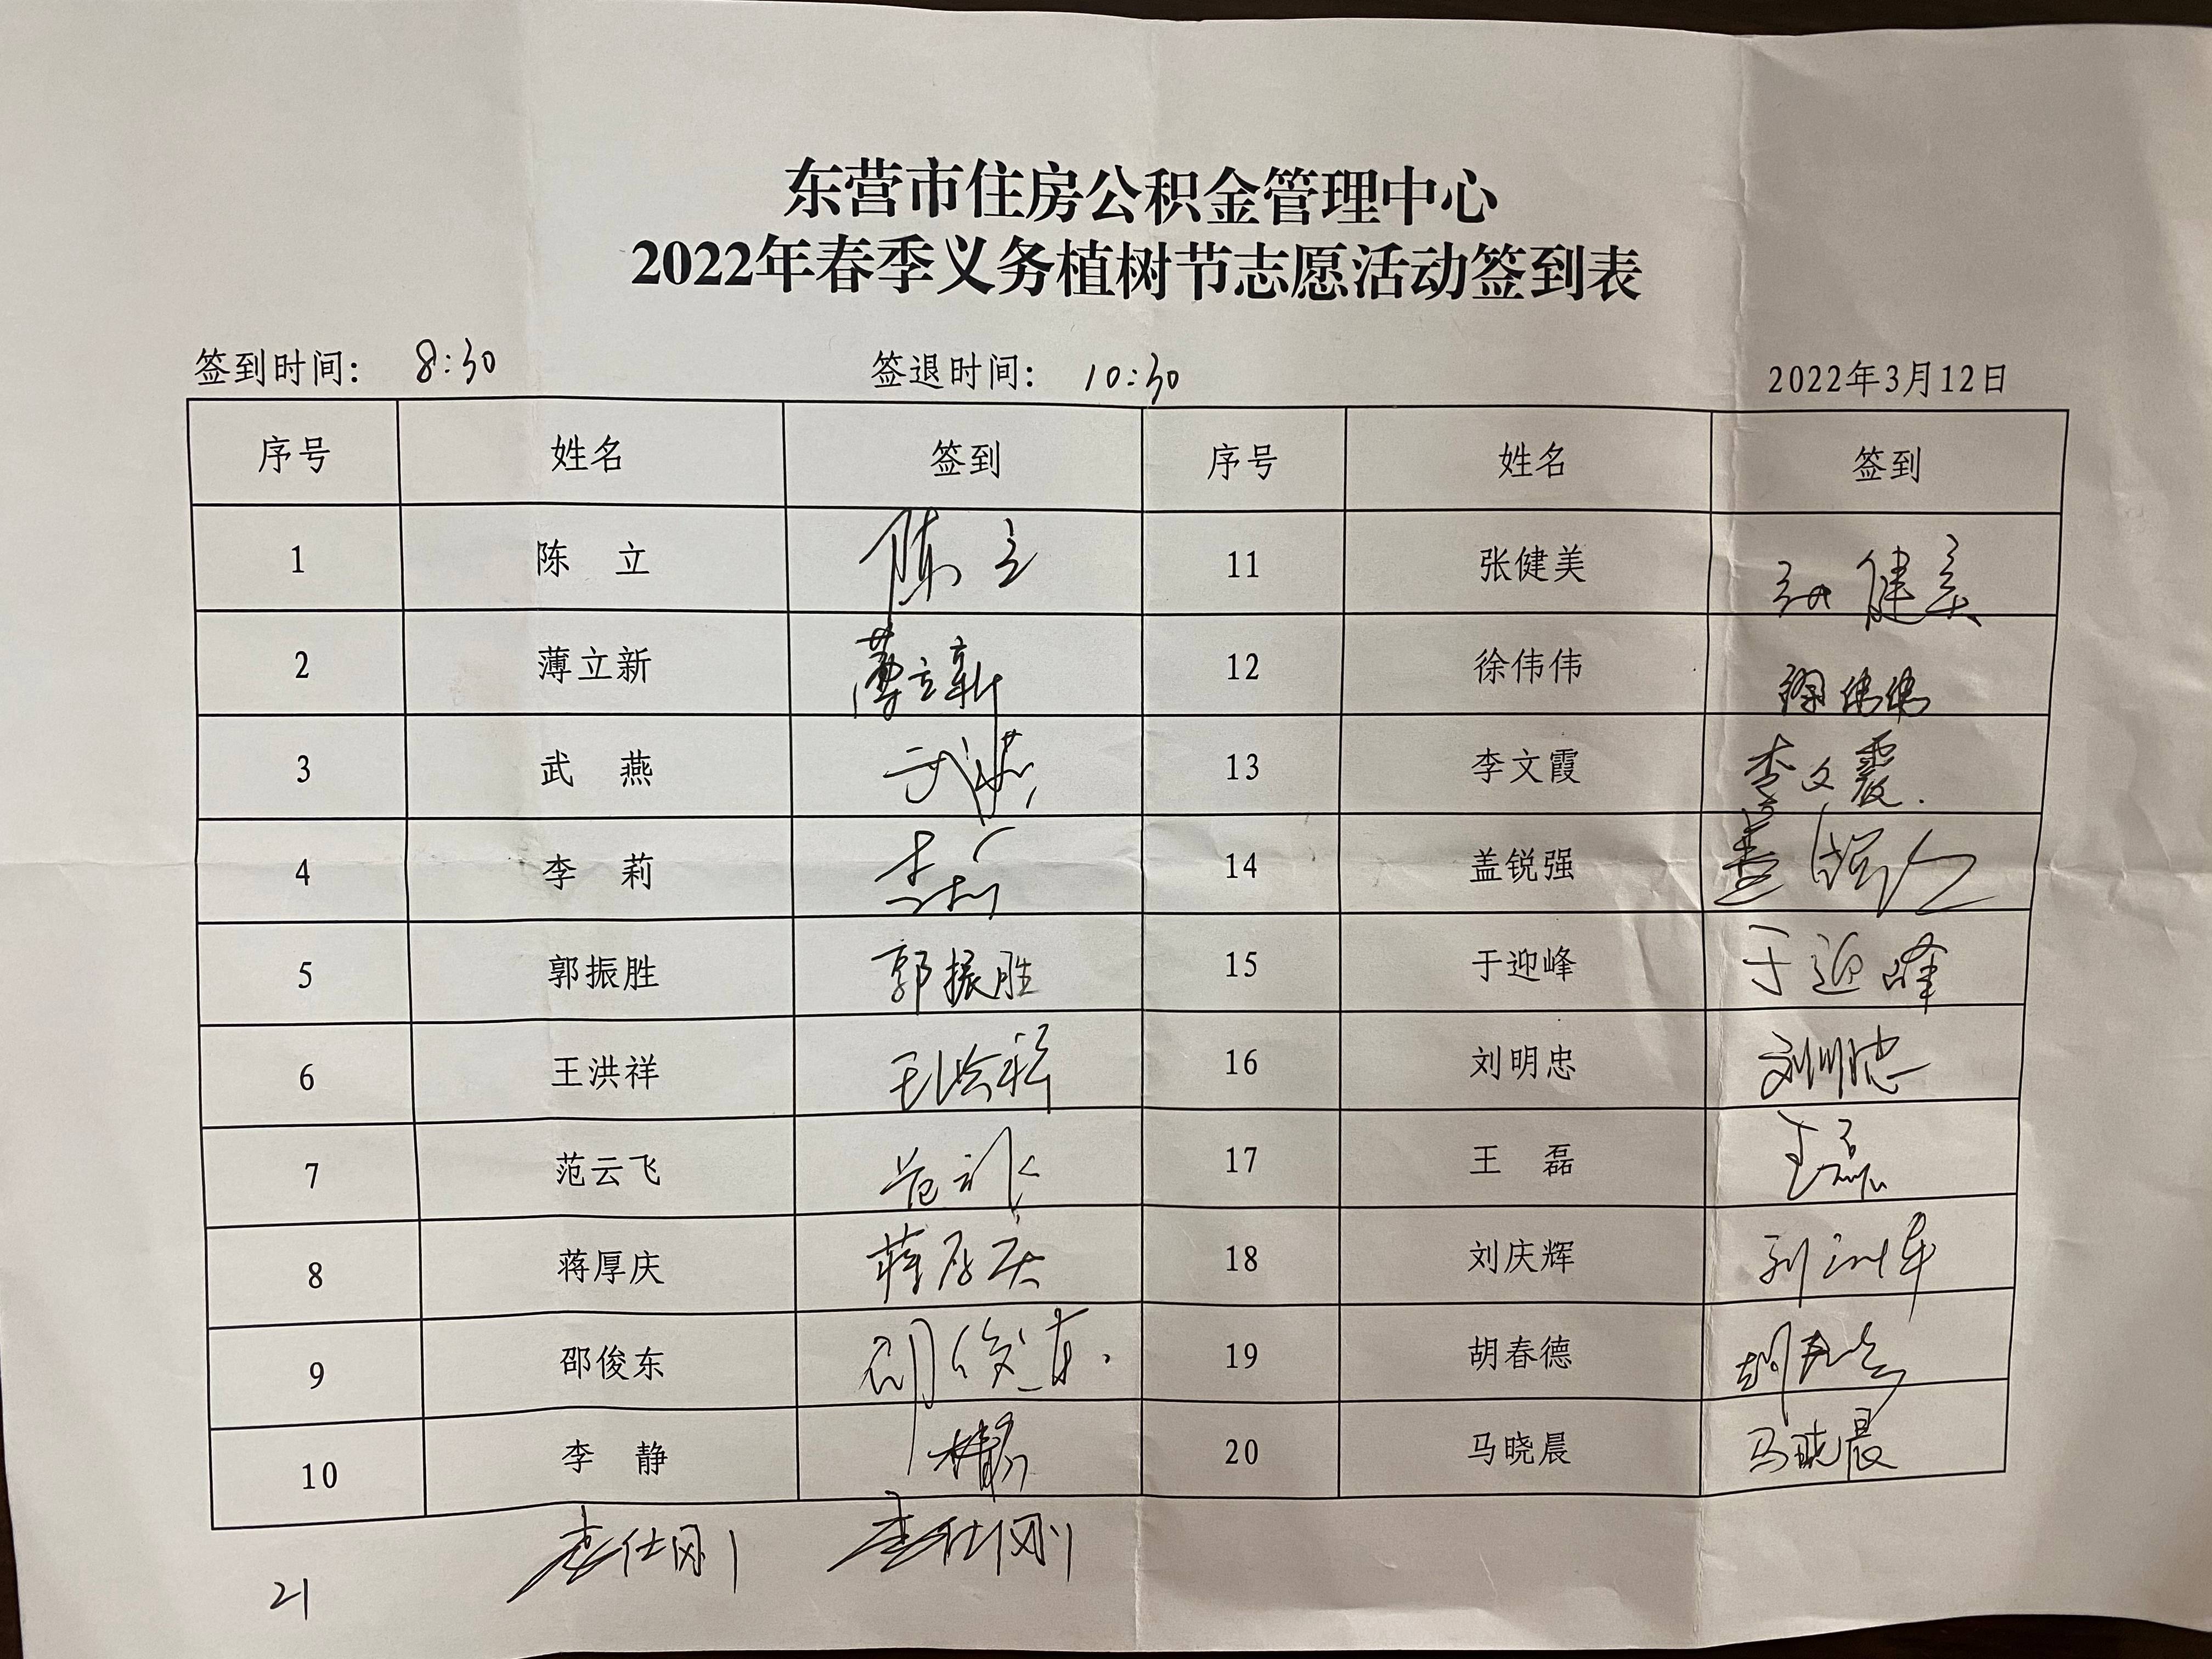 东营市住房公积金管理中心
2022年春季义务植树节志愿活动签到表
签到时间： 8:30 签退时间： 10:30 2022年3月12日
序号 姓名 签到 序号 姓名 签到
1 陈 立 陈立 11 张健美 张健美
2 薄立新 薄立新 12 徐伟伟 徐伟伟
3 武 燕 武燕 13 李文霞 李文霞
4 李 莉 李莉 14 盖锐强 盖锐强
5 郭振胜 郭振胜 15 于迎峰 于迎峰
6 王洪祥 王洪祥 16 刘明忠 刘明忠
7 范云飞 范云飞 17 王 磊 王磊
8 蒋厚庆 蒋厚庆 18 刘庆辉 刘庆辉
9 邵俊东 邵俊东 19 胡春德 胡春德
10 李 静 李静 20 马晓晨 马晓晨
21 李仕刚 李仕刚